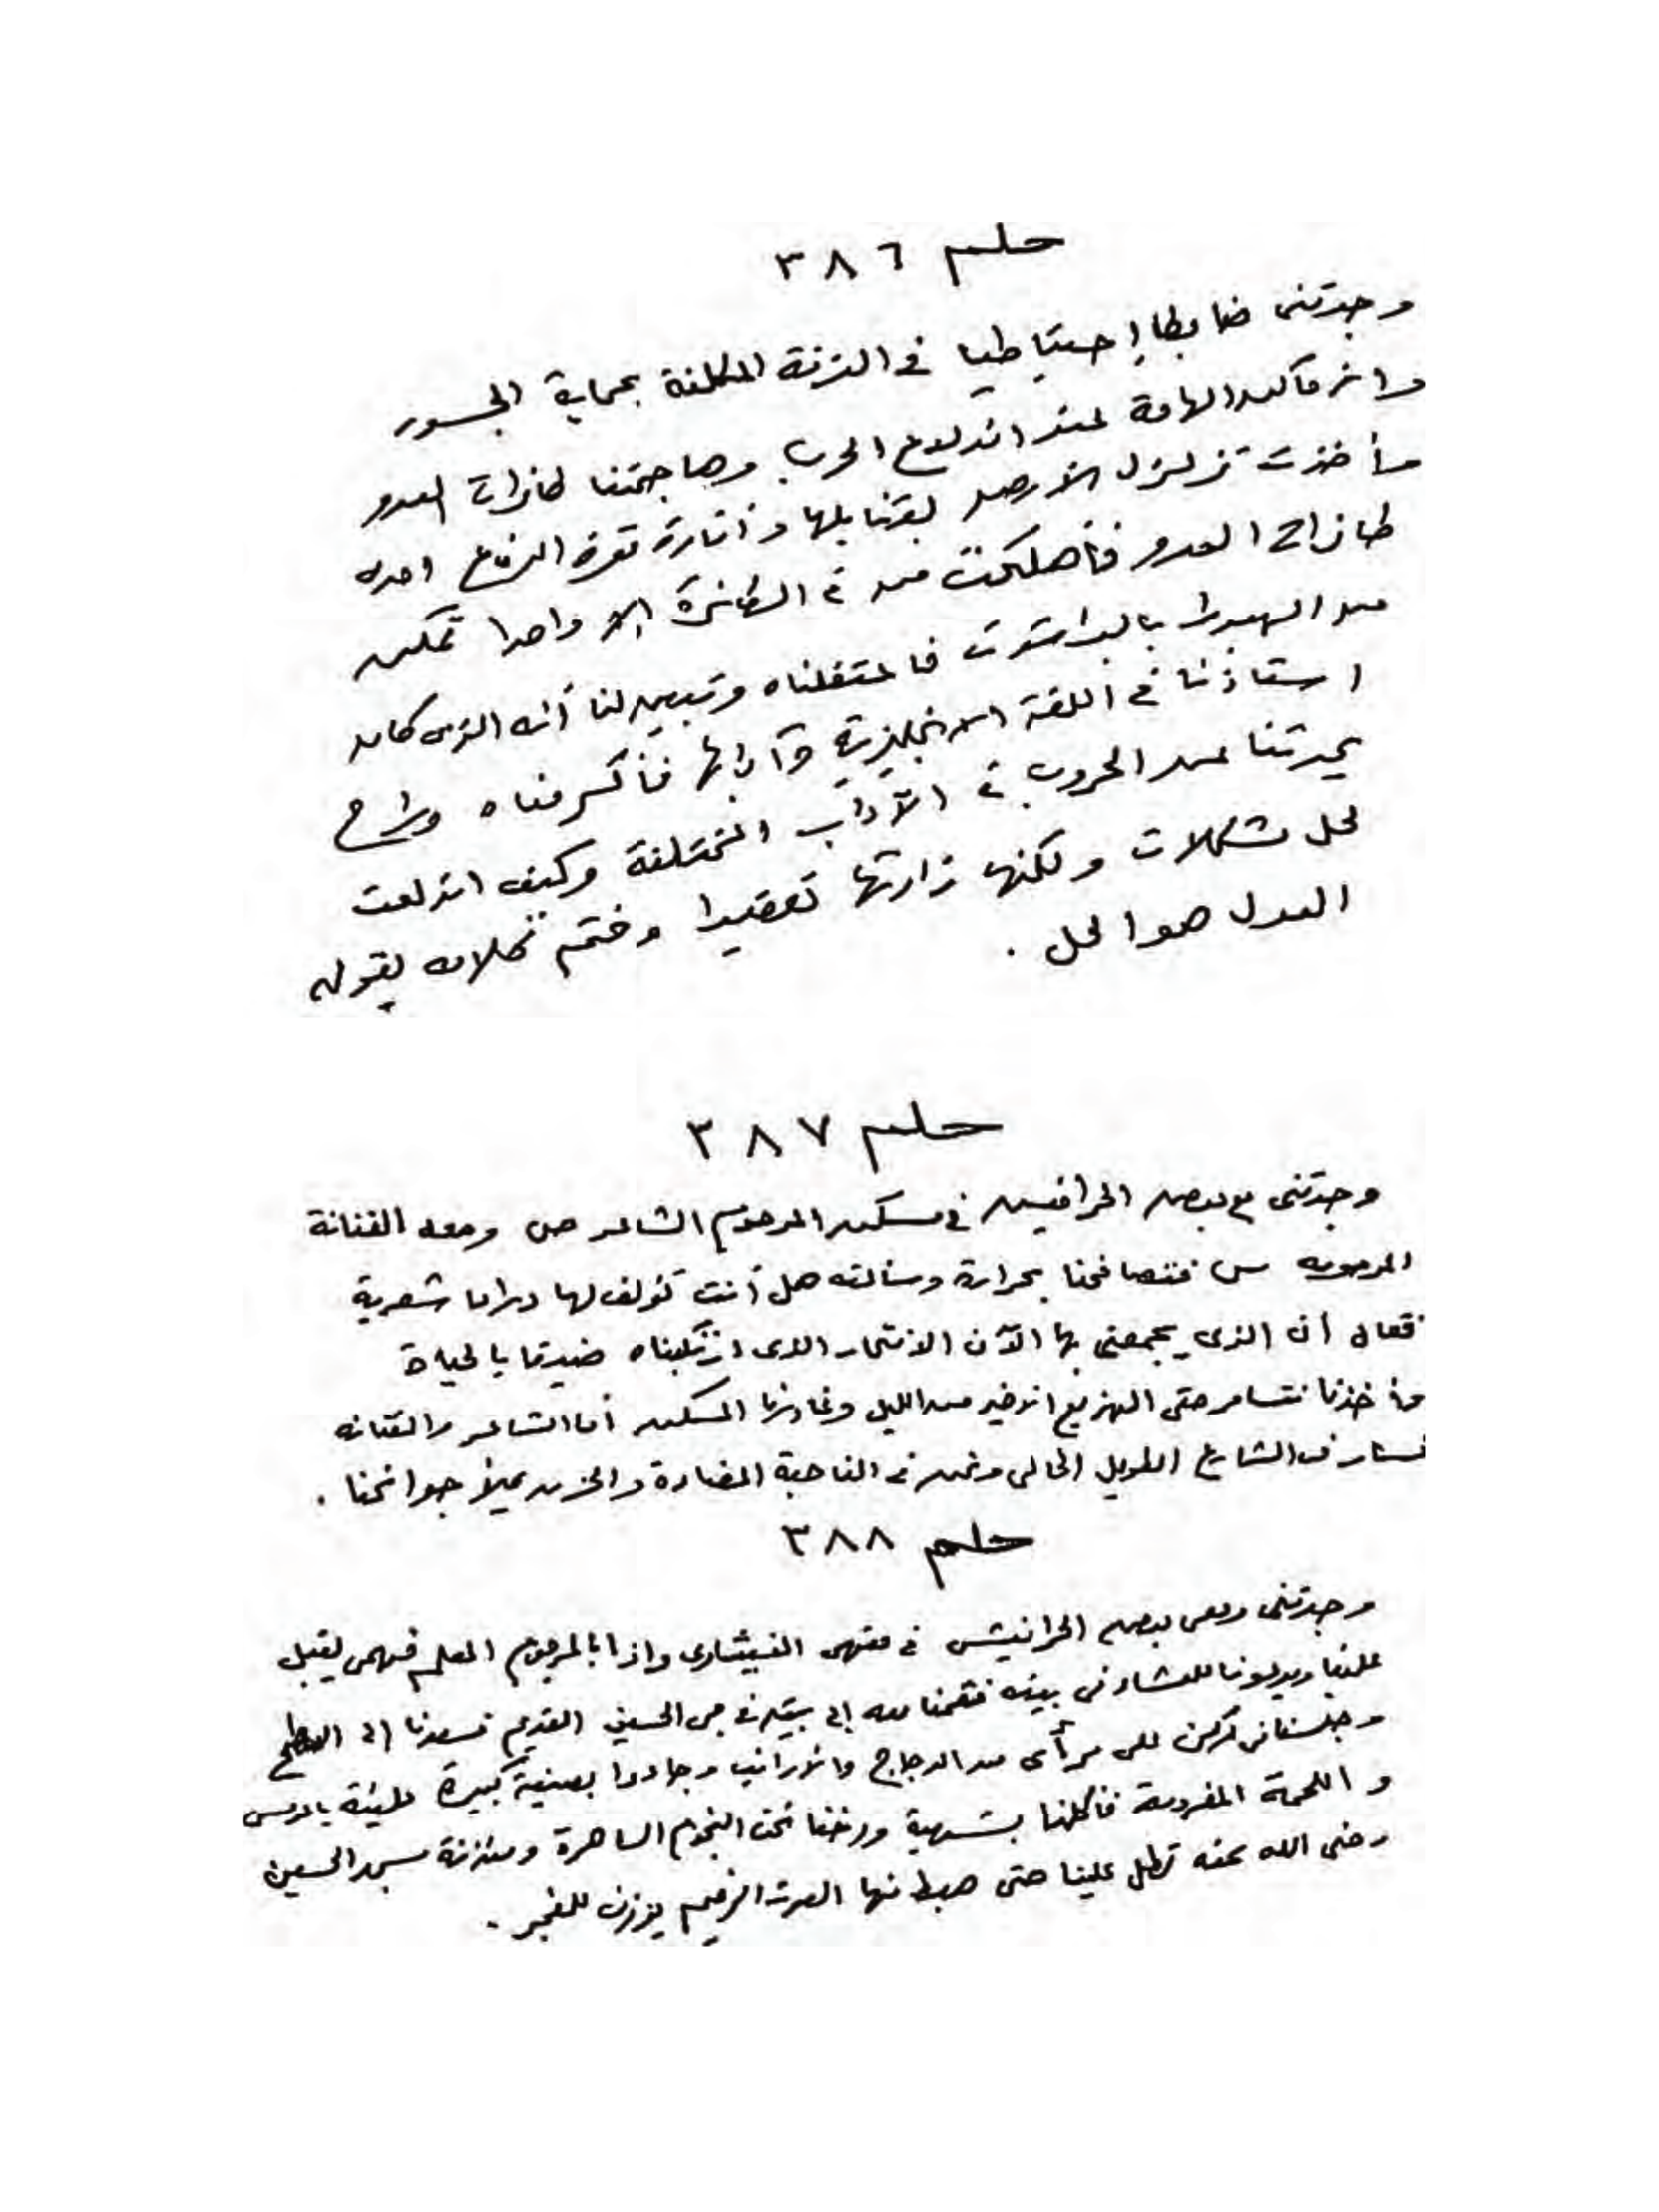 حلم ٣٨٦
وجدتنى ضابطا إحتياطيا فى الفرقة المكلفة بحماية الجسور
والأماكن الهامة عند اندلاع الحرب وهاجمتنا طائرات العدو
وأخذت تزلزل الأرض بقنابلها وأثارت قوة الدفاع احدى
طائرات العدو فأهلكت من فى الطائرة إلا واحدا تمكن
من الهبوط بالبراشوت فاعتقلناه وتبين لنا أنه الذى كان
استاذنا فى اللغة الانجليزية وآدابها فأكرمناه وراح
يحدثنا عن الحروب فى الآداب المختلفة وكيف اندلعت
لحل مشكلات ولكنها زادتها تعقيدا وختم كلامه بقوله
العدل هو الحل .
حلم ٣٨٧
وجدتنى مع بعض الحرافيش فى مسكن المرحوم الشاعر ص ومعه الفنانة
المرحومة س فتصافحنا بحرارة وسألته هل أنت تؤلف لها دراما شعرية
فقال أن الذى يجمعنى بها الآن الانتحار الذى ارتكبناه ضيقا بالحياة
وأخذنا نتسامر حتى الهزيع الأخير من الليل وغادرنا المسكن أما الشاعر والفنانه
فسار فى الشارع الطويل الخالى ونحن فى الناحية المضادة والحزن يملأ جوانحنا .
حلم ٣٨٨
وجدتنى ومعى بعض الحرافيش فى مقهى الفيشاوى واذا بالمرحوم المعلم فهمى يقبل
علينا ويدعونا للعشاء فى بيته فقمنا معه إلى بيته فى حى الحسين القديم فصعدنا إلى السطح
وجلسنا فى ركن على مرأى من الدجاج والأرانب وجاءوا بصنية كبيرة مليئة بالمش
و اللحمة المفرومة فأكلنا بشهية ودخنا تحت النجوم الساهرة ومئذنة مسجد الحسين
رضى الله عنه تطل علينا حتى هبط منها الصوت الرخيم يؤذن للفجر .